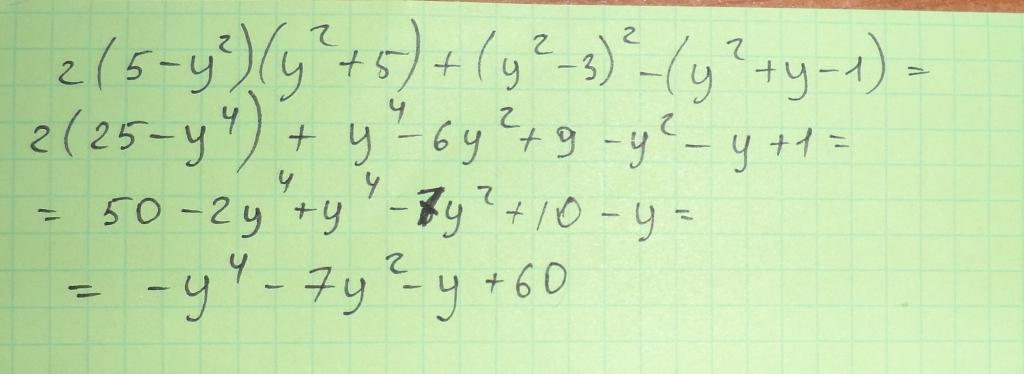 2(5-y²)(y²+5)+(y²-3)²-(y²+y-1)=
2(25-y⁴)+y⁴-6y²+9-y²-y+1=
=50-2y⁴+y⁴-7y²+10-y=
=-y⁴-7y²-y+60